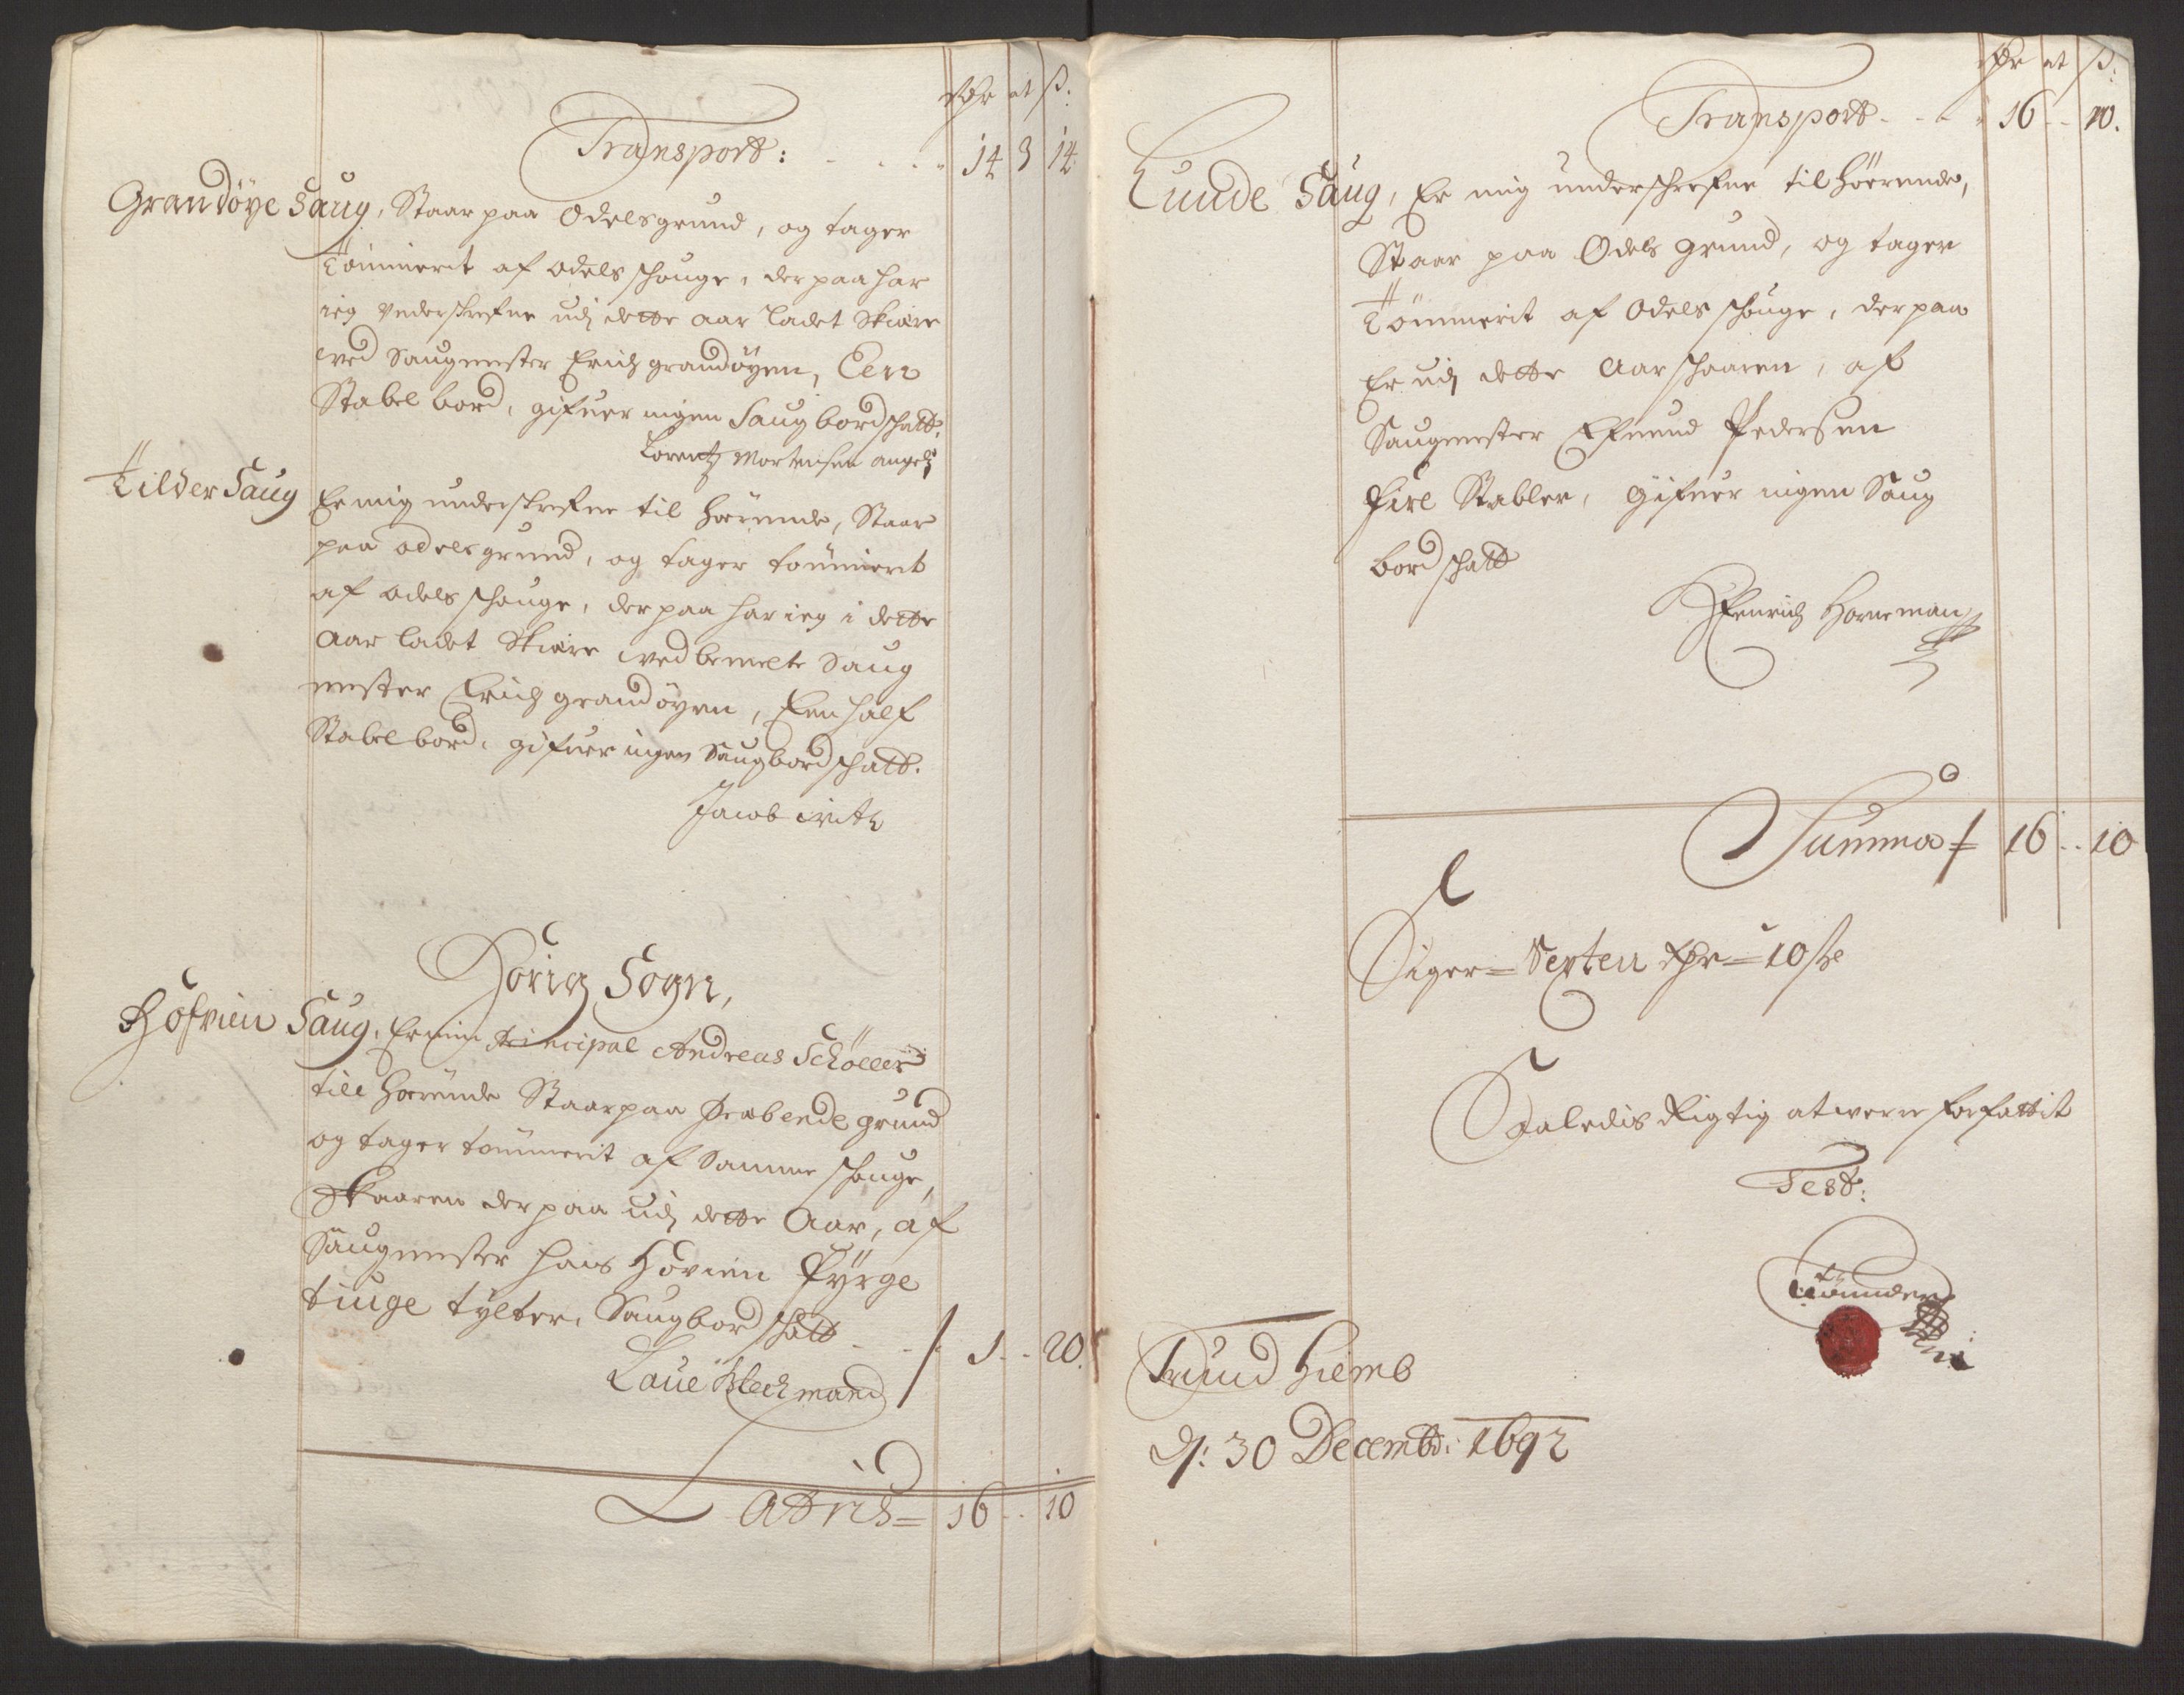 Rdr ort ß.
Transport: 14 3 14
Grandöye Saug, Staar paa Odelsgrund, og tager
tömmerit af odels schouge, der paa har
ieg underskrefne udj dette aar ladet Skiære
ved Saugmester Erich grandöyen, Een
Stabel bord, gifuer ingen Saugbordschatt.
Lorentz Mortensen angell
Tilder Saug Er mig underskrefne til hörende, Staar
paa odelsgrund, og tager tömmerit
af odels schouge, der paa har ieg i dette
Aar ladet Skiære ved bemelte Saug
mester Erich grandöyen, Een half
Stabel bord, gifuer ingen Saugbordschatt.
Jacob
Börig Sogn,
Höfvien Saug, Er min Principal Andreas Schöller
till hörende Staar paa Præbende grund
og tager tömmerit af Samme schouge,
Skaaren der paa udj dette Aar, af
Saugmester hans Hövien Fyrge
tiuge tylter, Saugbordschatt - - 1 - - 20.
Laue Bleckmand
Latris = 16 - - 10
Rdr ort ß:
Transport - - - 16 - - 10.
Lunde Saug, Er mig underschrefne til hörende,
Staar paa Odels grund, og tager
Tömmerit af Odels schouge, der paa
Er udj dette Aar schaaren, af
Saugmester Efuend Pedersen
Fire Stabler, gifuer ingen Saug
bordschatt
Henrich Horneman
Summa 16 - - 10
Siger = Sexten Rdr = 10 ße
Saaledis Rigtig at were forfattit
Test:
Trundhiemb
d: 30 Decembr: 1692